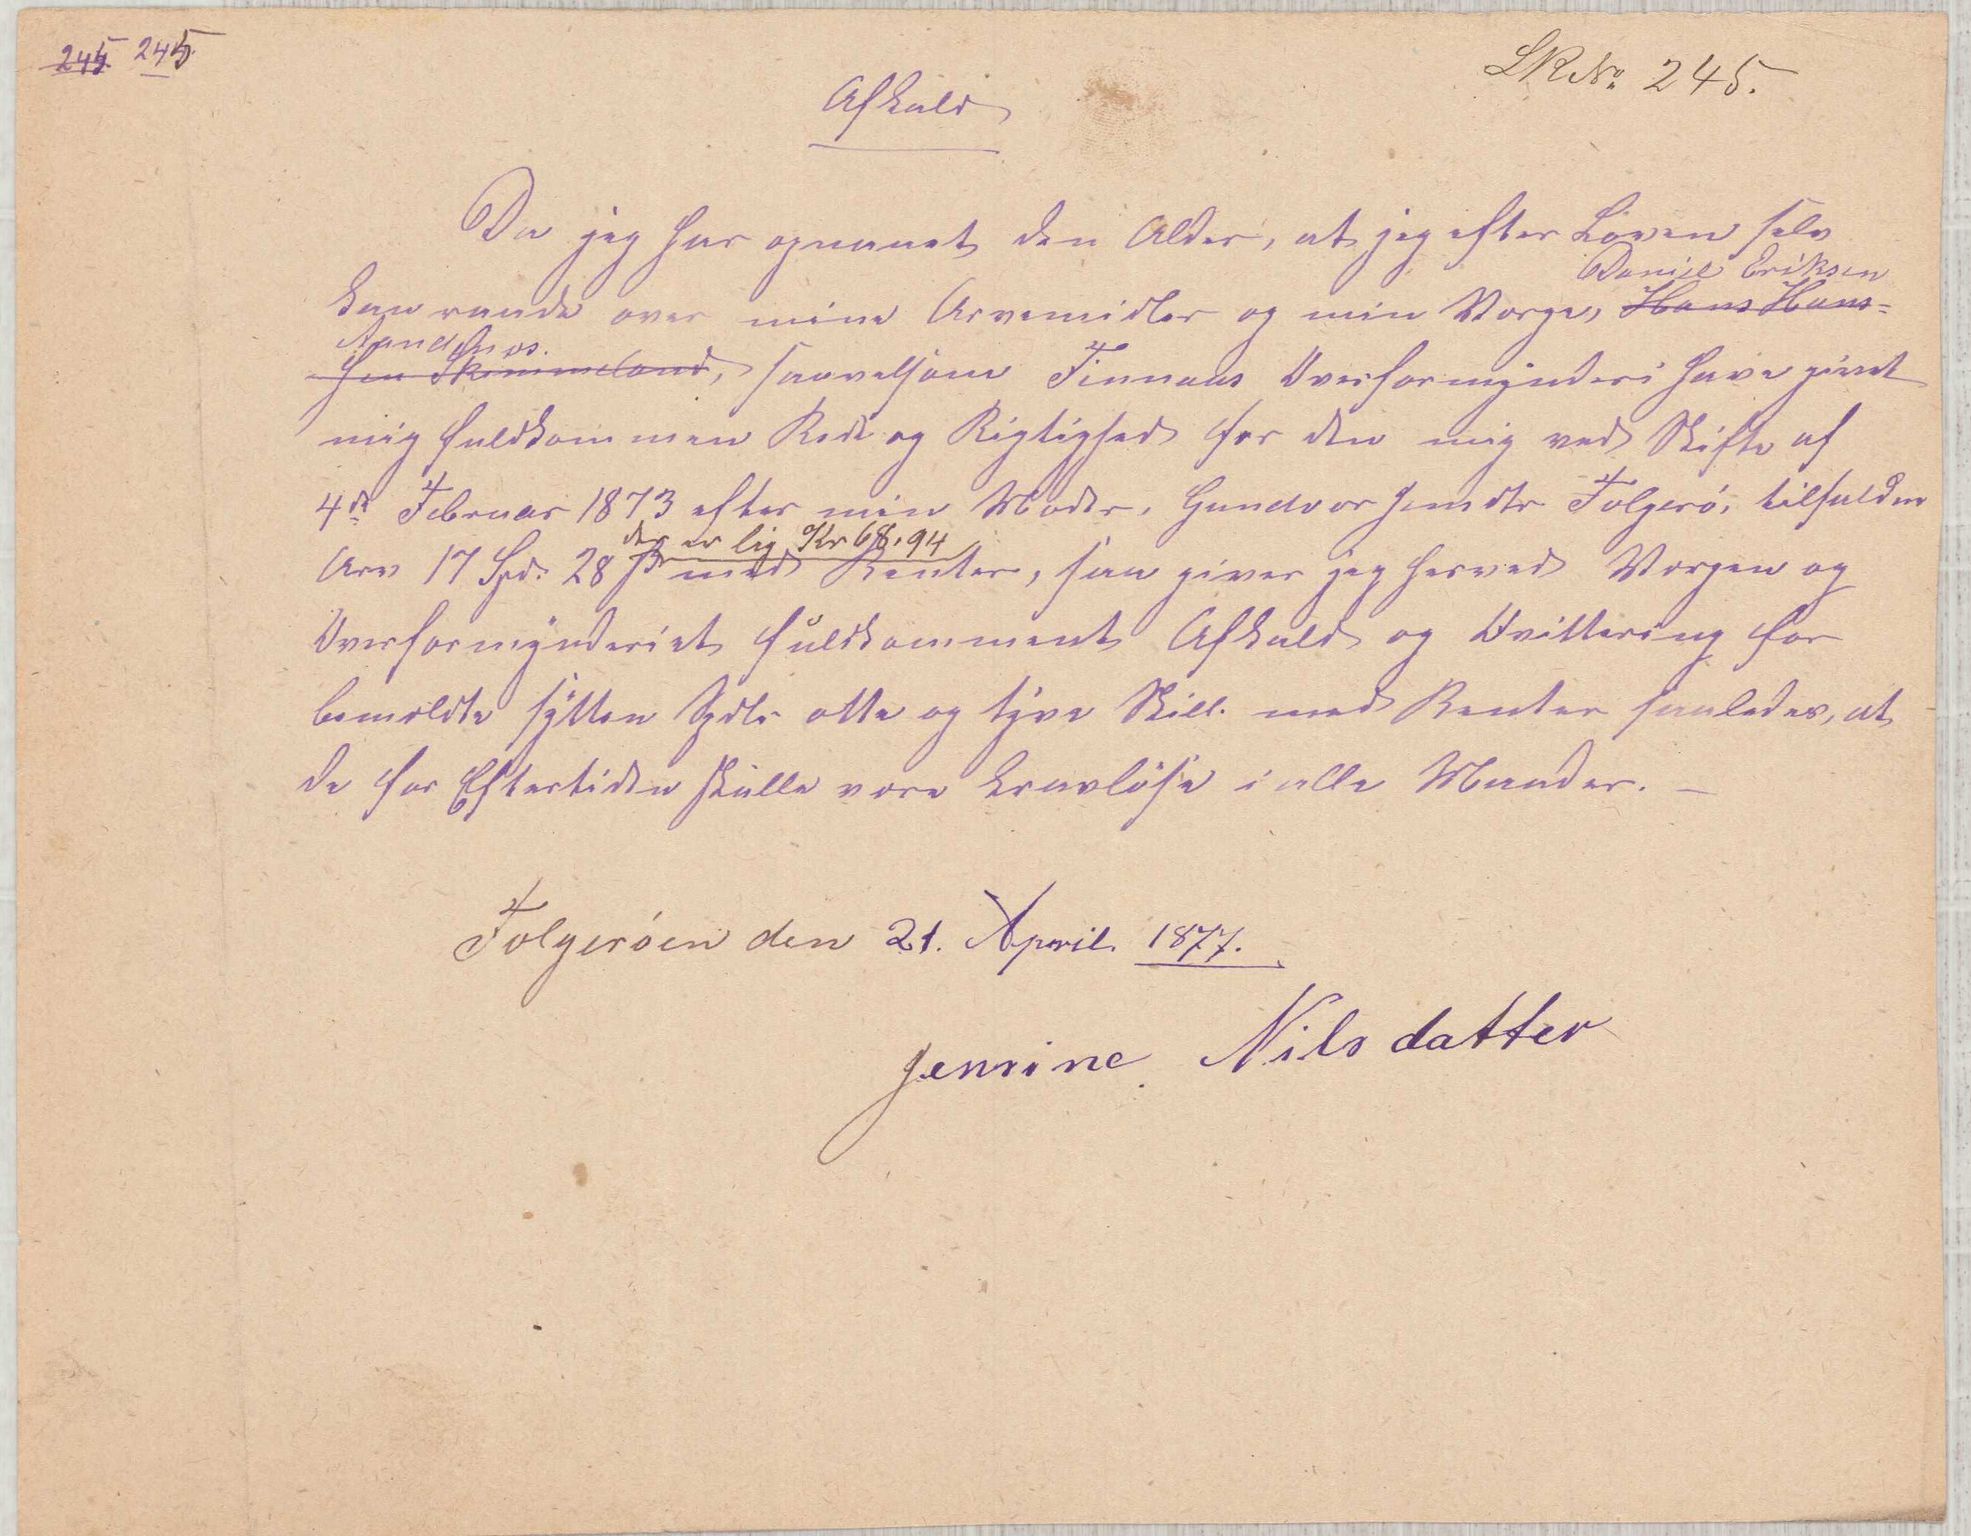 245 245
LR No 245.
Afkald
Da jeg har opnaaet den Alder, at jeg efter Loven selv
Daniel Eriksen
kan raade over mine Arvemidler og min Værge, Hans Hans-
sen Skimmeland, saavelsom Finnaas Overformynderi have givet
mig fuldkommen Rede og Rigtighed for den mig ved Skifte af
4de Februar 1873 efter min Moder, Gundvor Jensdtr Folgerö, tilfaldne
der er lig Kr 68,94
Arv 17 Spd. 28 ß med Renter, saa giver jeg herved Værgen og
Overformynderiet fuldkomment Afkald og Kvittering for
bemeldte sytten Spdlr otte og tyve Skill. med Renter saaledes, at
de for Eftertiden skulle være kravlöse i alle Maader. —
Folgeröen den 21. April. 1877.
Jensine Nilsdatter